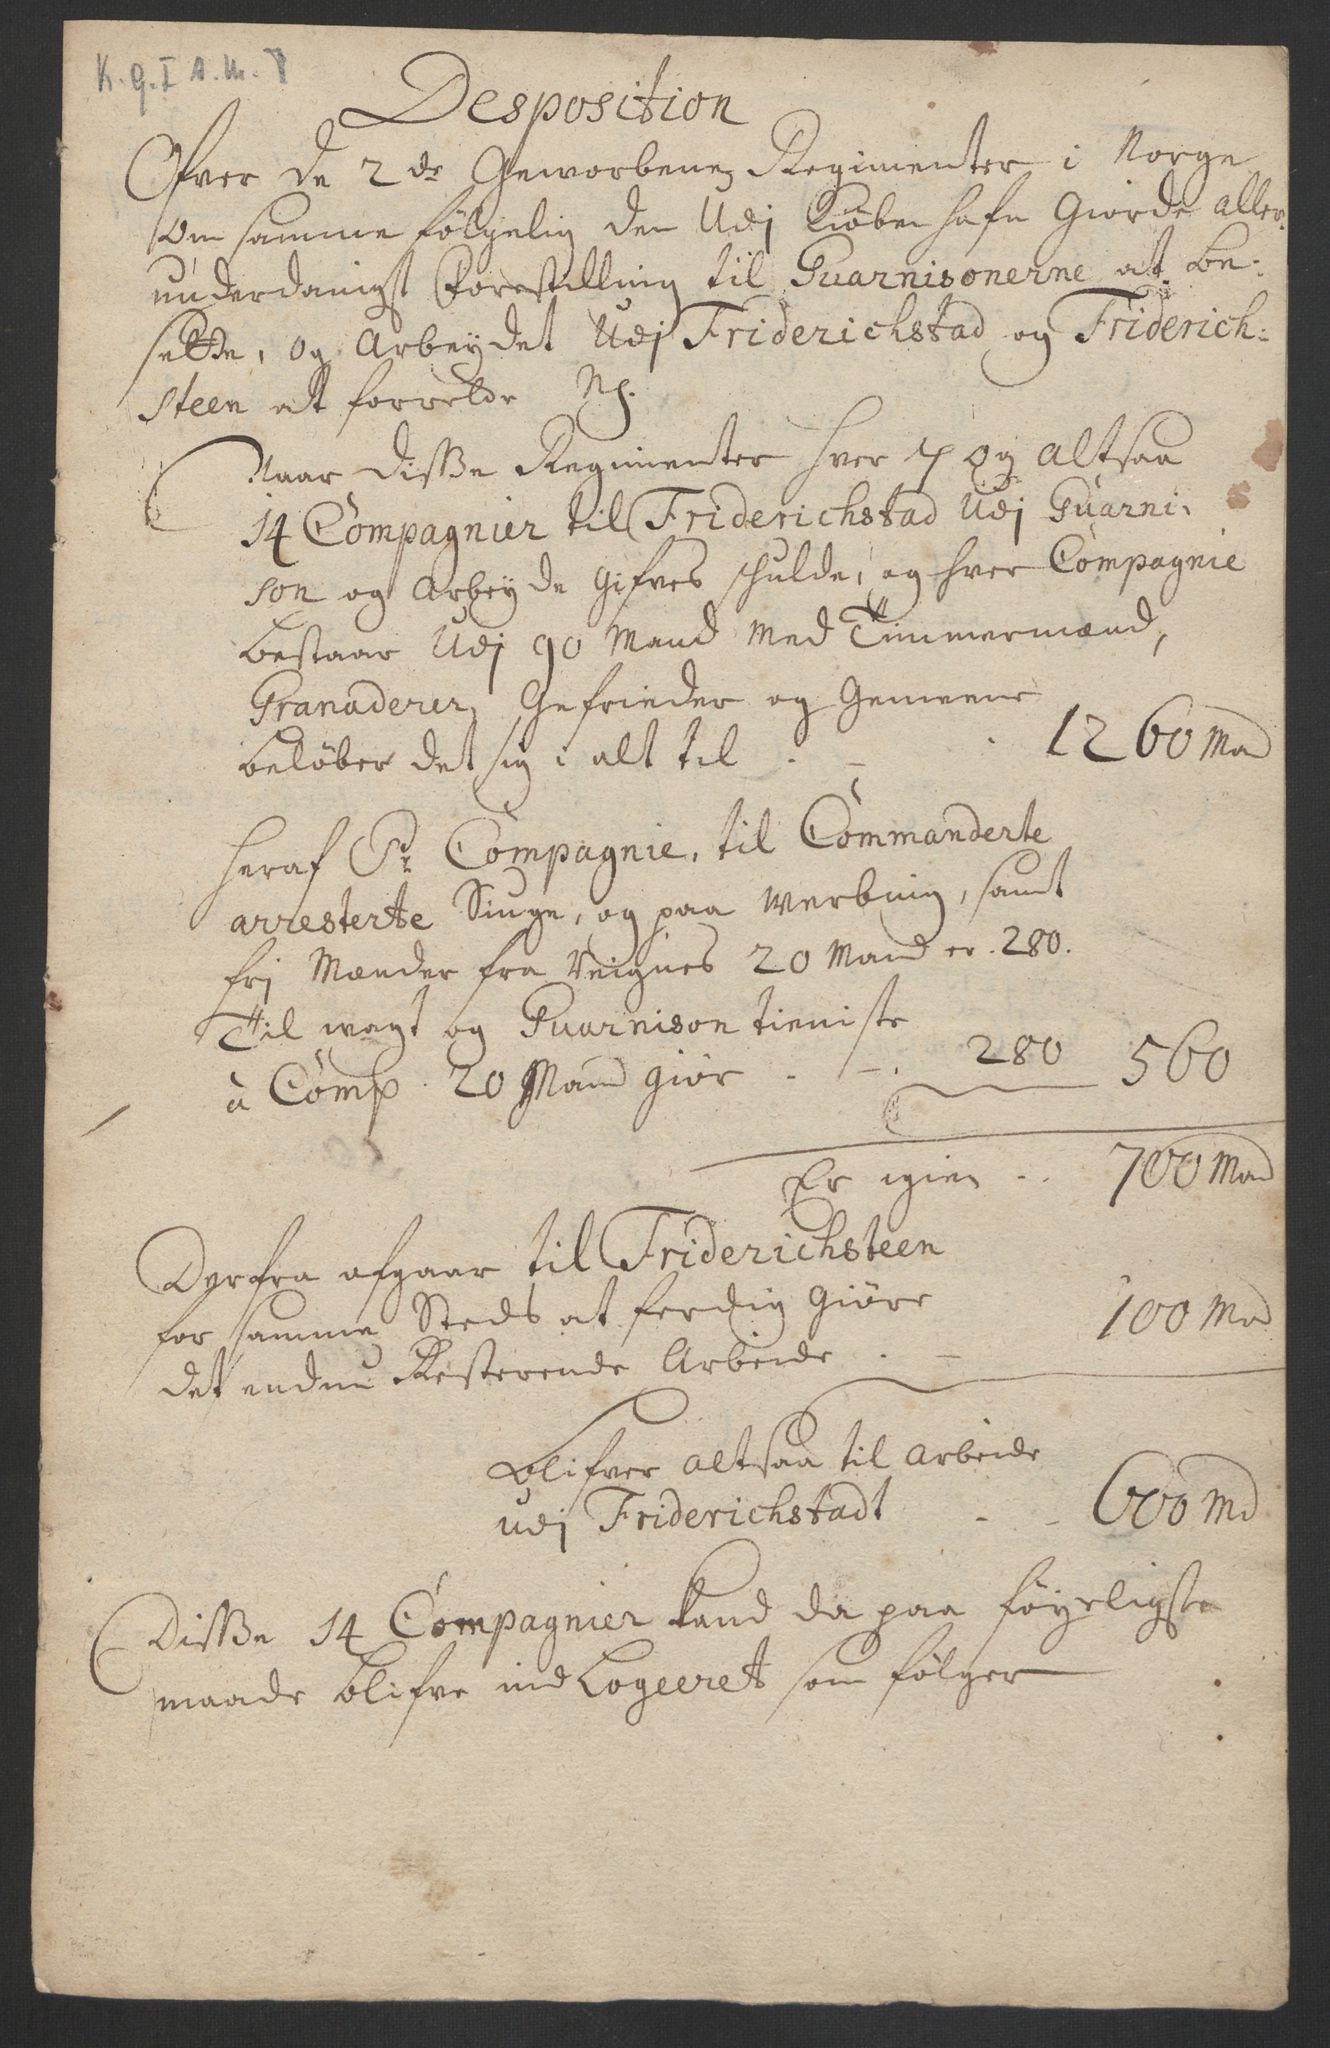 K.g.I A.M. 8
Desposition
Ofver de 2de Geworbene Regimenter i Norge
om samme følgelig den Udj Kiøbenhafn Giorde aller-
underdanigst Forestilling til Guarnisonerne at be-
sette, og Arbeydet Udj Friderichstad og Friderich-
steen at forrette
Naar disse Regimenter hver 7 og altsaa
14 Compagnier til Friderichstad Udj Guarni-
son og Arbeyde gifves schulde, og hver Compagnie
bestaar Udj 90 Mand med Timmermænd,
Granaderer, Gefrieder og Gemeene
beløber det sig i alt til . - . 1260 Mand
heraf Pr Compagnie, til Commanderte
arresterte Siuge, og paa werbung, samt
frj Mænder fra 20 Mand er . 280.
Til wagt og Guarnison tieniste
à Comp. 20 Mand giør - -. 280 560
Er igien - . 700 Mand
Derfra afgaar til Friderichsteen
for samme Steds at ferdig giøre
det endnu Resterende Arbeide . - 100 Md
blifver altsaa til arbeide
udj Friderichstadt - - 600 Md
Disse 14 Compagnier kand da paa føyeligste
maade blifve ind Logeeret som følger